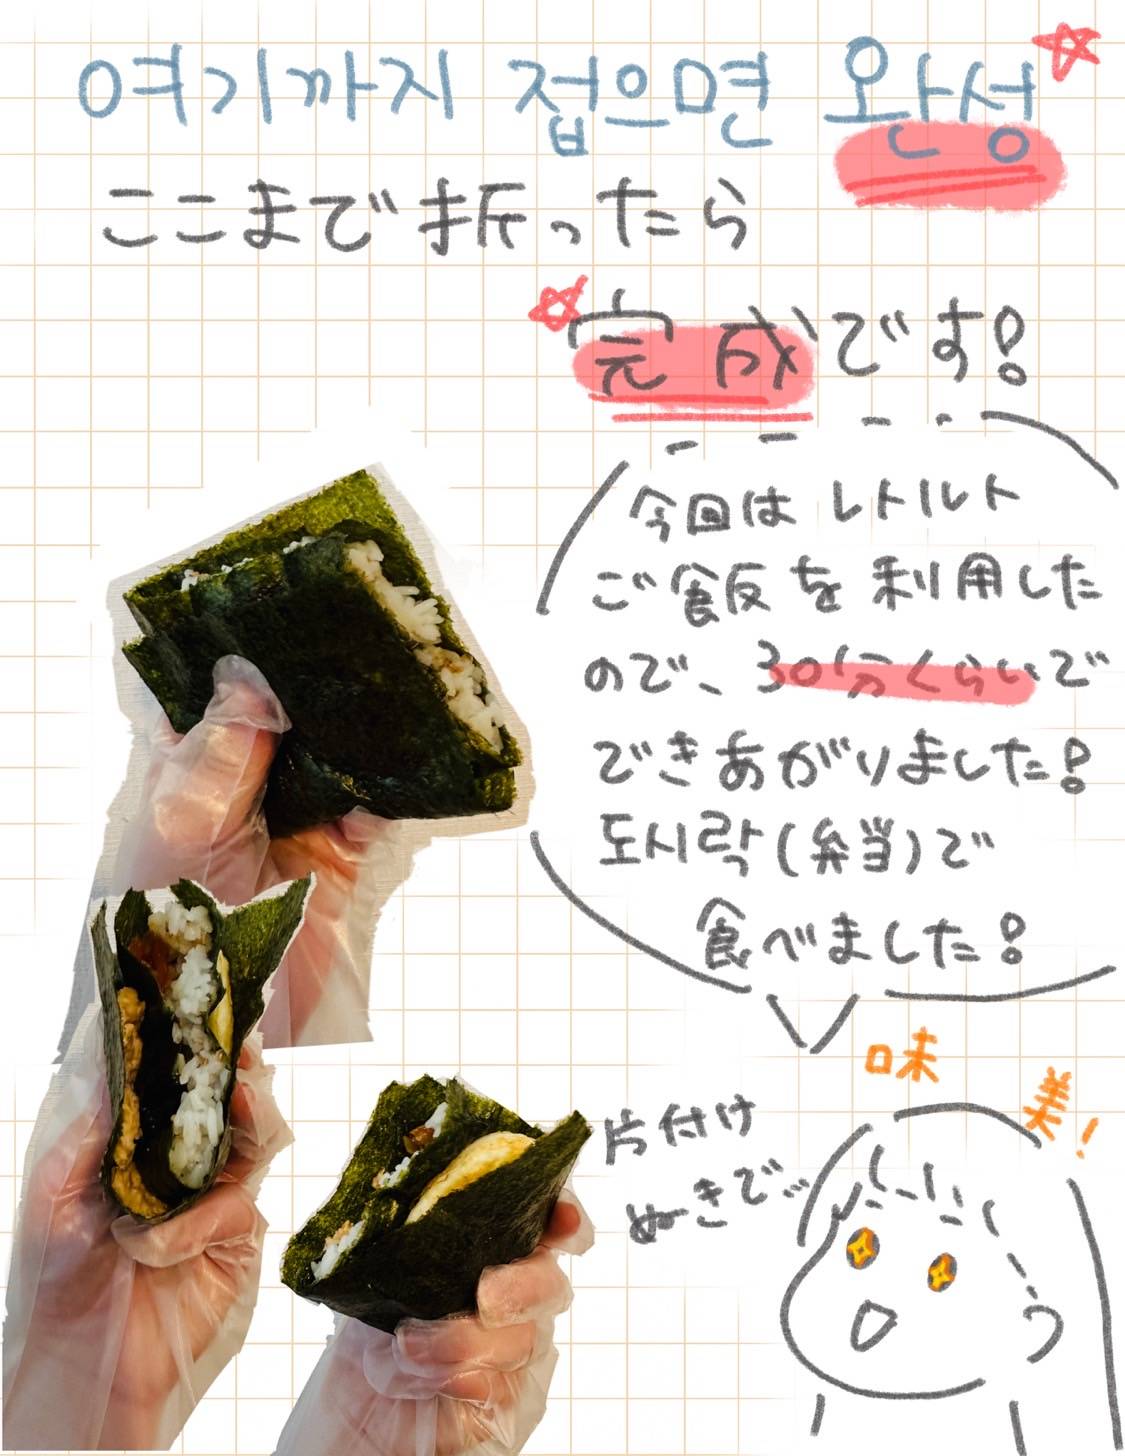 여기까지 접으면 완성
ここまで折ったら
完成です!
今回はレトルト
ご飯を利用した
ので、30分くらいで
できあがりました!
도시락(弁当)で
食べました!
味
美!
片付け
ぬきで…